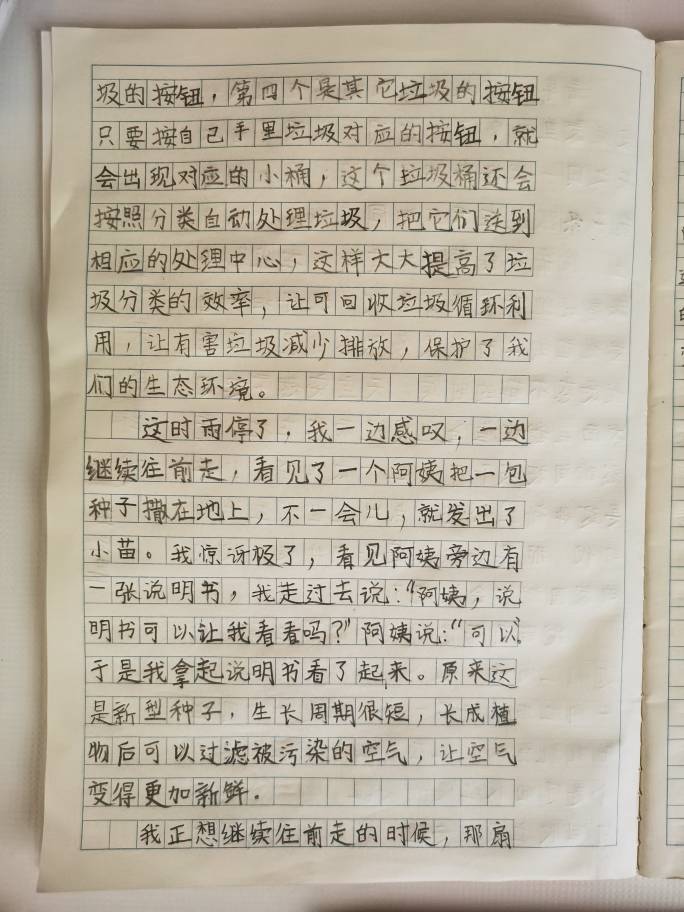 圾的按钮，第四个是其它垃圾的按钮
只要按自己手里垃圾对应的按钮，就
会出现对应的小桶，这个垃圾桶还会
按照分类自动处理垃圾，把它们送到
相应的处理中心，这样大大提高了垃
圾分类的效率，让可回收垃圾循环利
用，让有害垃圾减少排放，保护了我
们的生态环境。
这时雨停了，我一边感叹，一边
继续往前走，看见了一个阿姨把一包
种子撒在地上，不一会儿，就发出了
小苗。我惊讶极了，看见阿姨旁边有
一张说明书，我走过去说：“阿姨，说
明书可以让我看看吗？”阿姨说：“可以。
于是我拿起说明书看了起来。原来这
是新型种子，生长周期很短，长成植
物后可以过滤被污染的空气，让空气
变得更加新鲜。
我正想继续往前走的时候，那扇